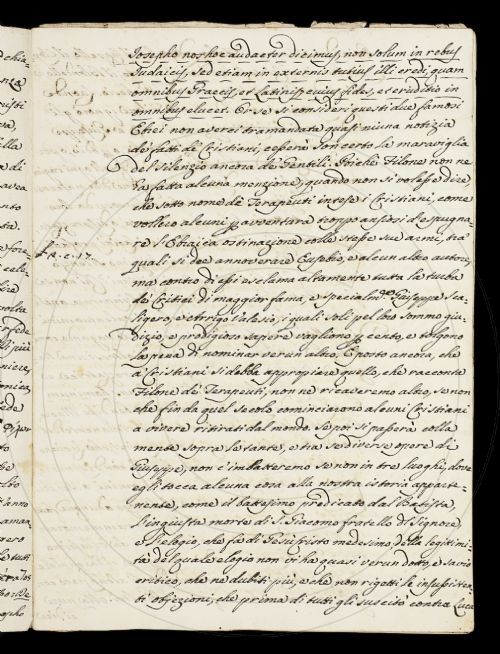 Josepho nos hoc audacter dicimus, non solum in rebus
Judaicis, sed etiam in externis tutius illi credi, quam
omnibus Graecis, et Latinis, cuius fides, et eruditio in
omnibus elucet. Or se si consideri questi due famosi
Ebrei non averci tramandata quasi niuna notizia
de' fatti de' Cristiani, cesserà con certo la maraviglia
del silenzio ancora de' Gentili. Poiche Filone non ne
ha fatta alcuna menzione, quando non si volesse dire,
che sotto nome de' Terapeuti intese i Cristiani, come
vollero alcuni p avventura troppo ansiosi d'espugna-
re l'Ebraica ostinazione colle stesse sue armi, tra
l. 2. c. 17.
quali si dee annoverare Eusebio, e alcun altro autore,
ma contro di essi esclama altamente tutta la turba
de' Critici di maggior fama, e specialm.e Giuseppe Sca-
ligero, e Arrigo Valesio, i quali soli pel loro sommo giu-
dizio, e prodigioso sapere vagliono p cento, e tolgono
la pena di nominar verun altro. E posto ancora, che
a' Cristiani si debba appropiare quello, che racconta
Filone de' Terapeuti, non ne ricaveremo altro, se non
che fin da quel secolo cominciarono alcuni Cristiani
a vivere ritirati dal mondo. Se poi si passerà colla
mente sopra le tante, e tra se diverse opere di
Giuseppe, non c'imbatteremo se non in tre luoghi, dove
egli tocca alcuna cosa alla nostra istoria apparte-
nente, come il battesimo predicato dal Batista,
l'ingiusta morte di S. Giacomo fratello di Signore,
e l'elogio, che fa di Gesù Cristo medesimo, della legitimi-
tà del quale elogio non vi ha quasi verun dotto, e savio
critico, che ne dubiti più, e che non rigetti le insussisten-
ti objezioni, che prima di tutti gli suscitò contra Luca